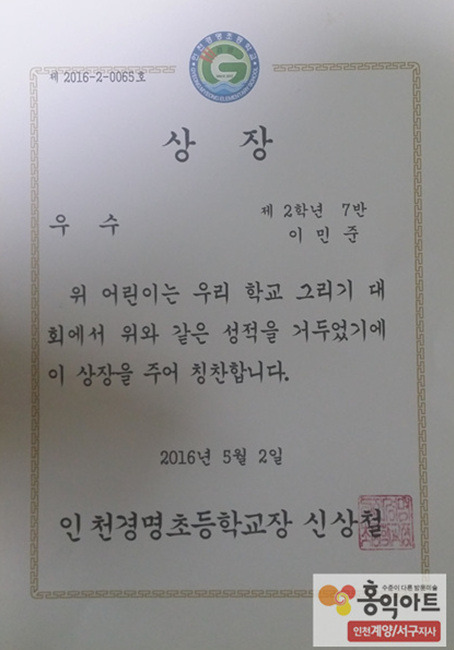 인천경명초등학교
제 2016-2-0065호
상 장
우 수
제 2학년 7반
이 민 준
위 어린이는 우리 학교 그리기 대
회에서 위와 같은 성적을 거두었기에
이 상장을 주어 칭찬합니다.
2016년 5월 2일
인천경명초등학교장 신상철
수준이 다른 방문미술
홍익아트
인천계양/서구지사